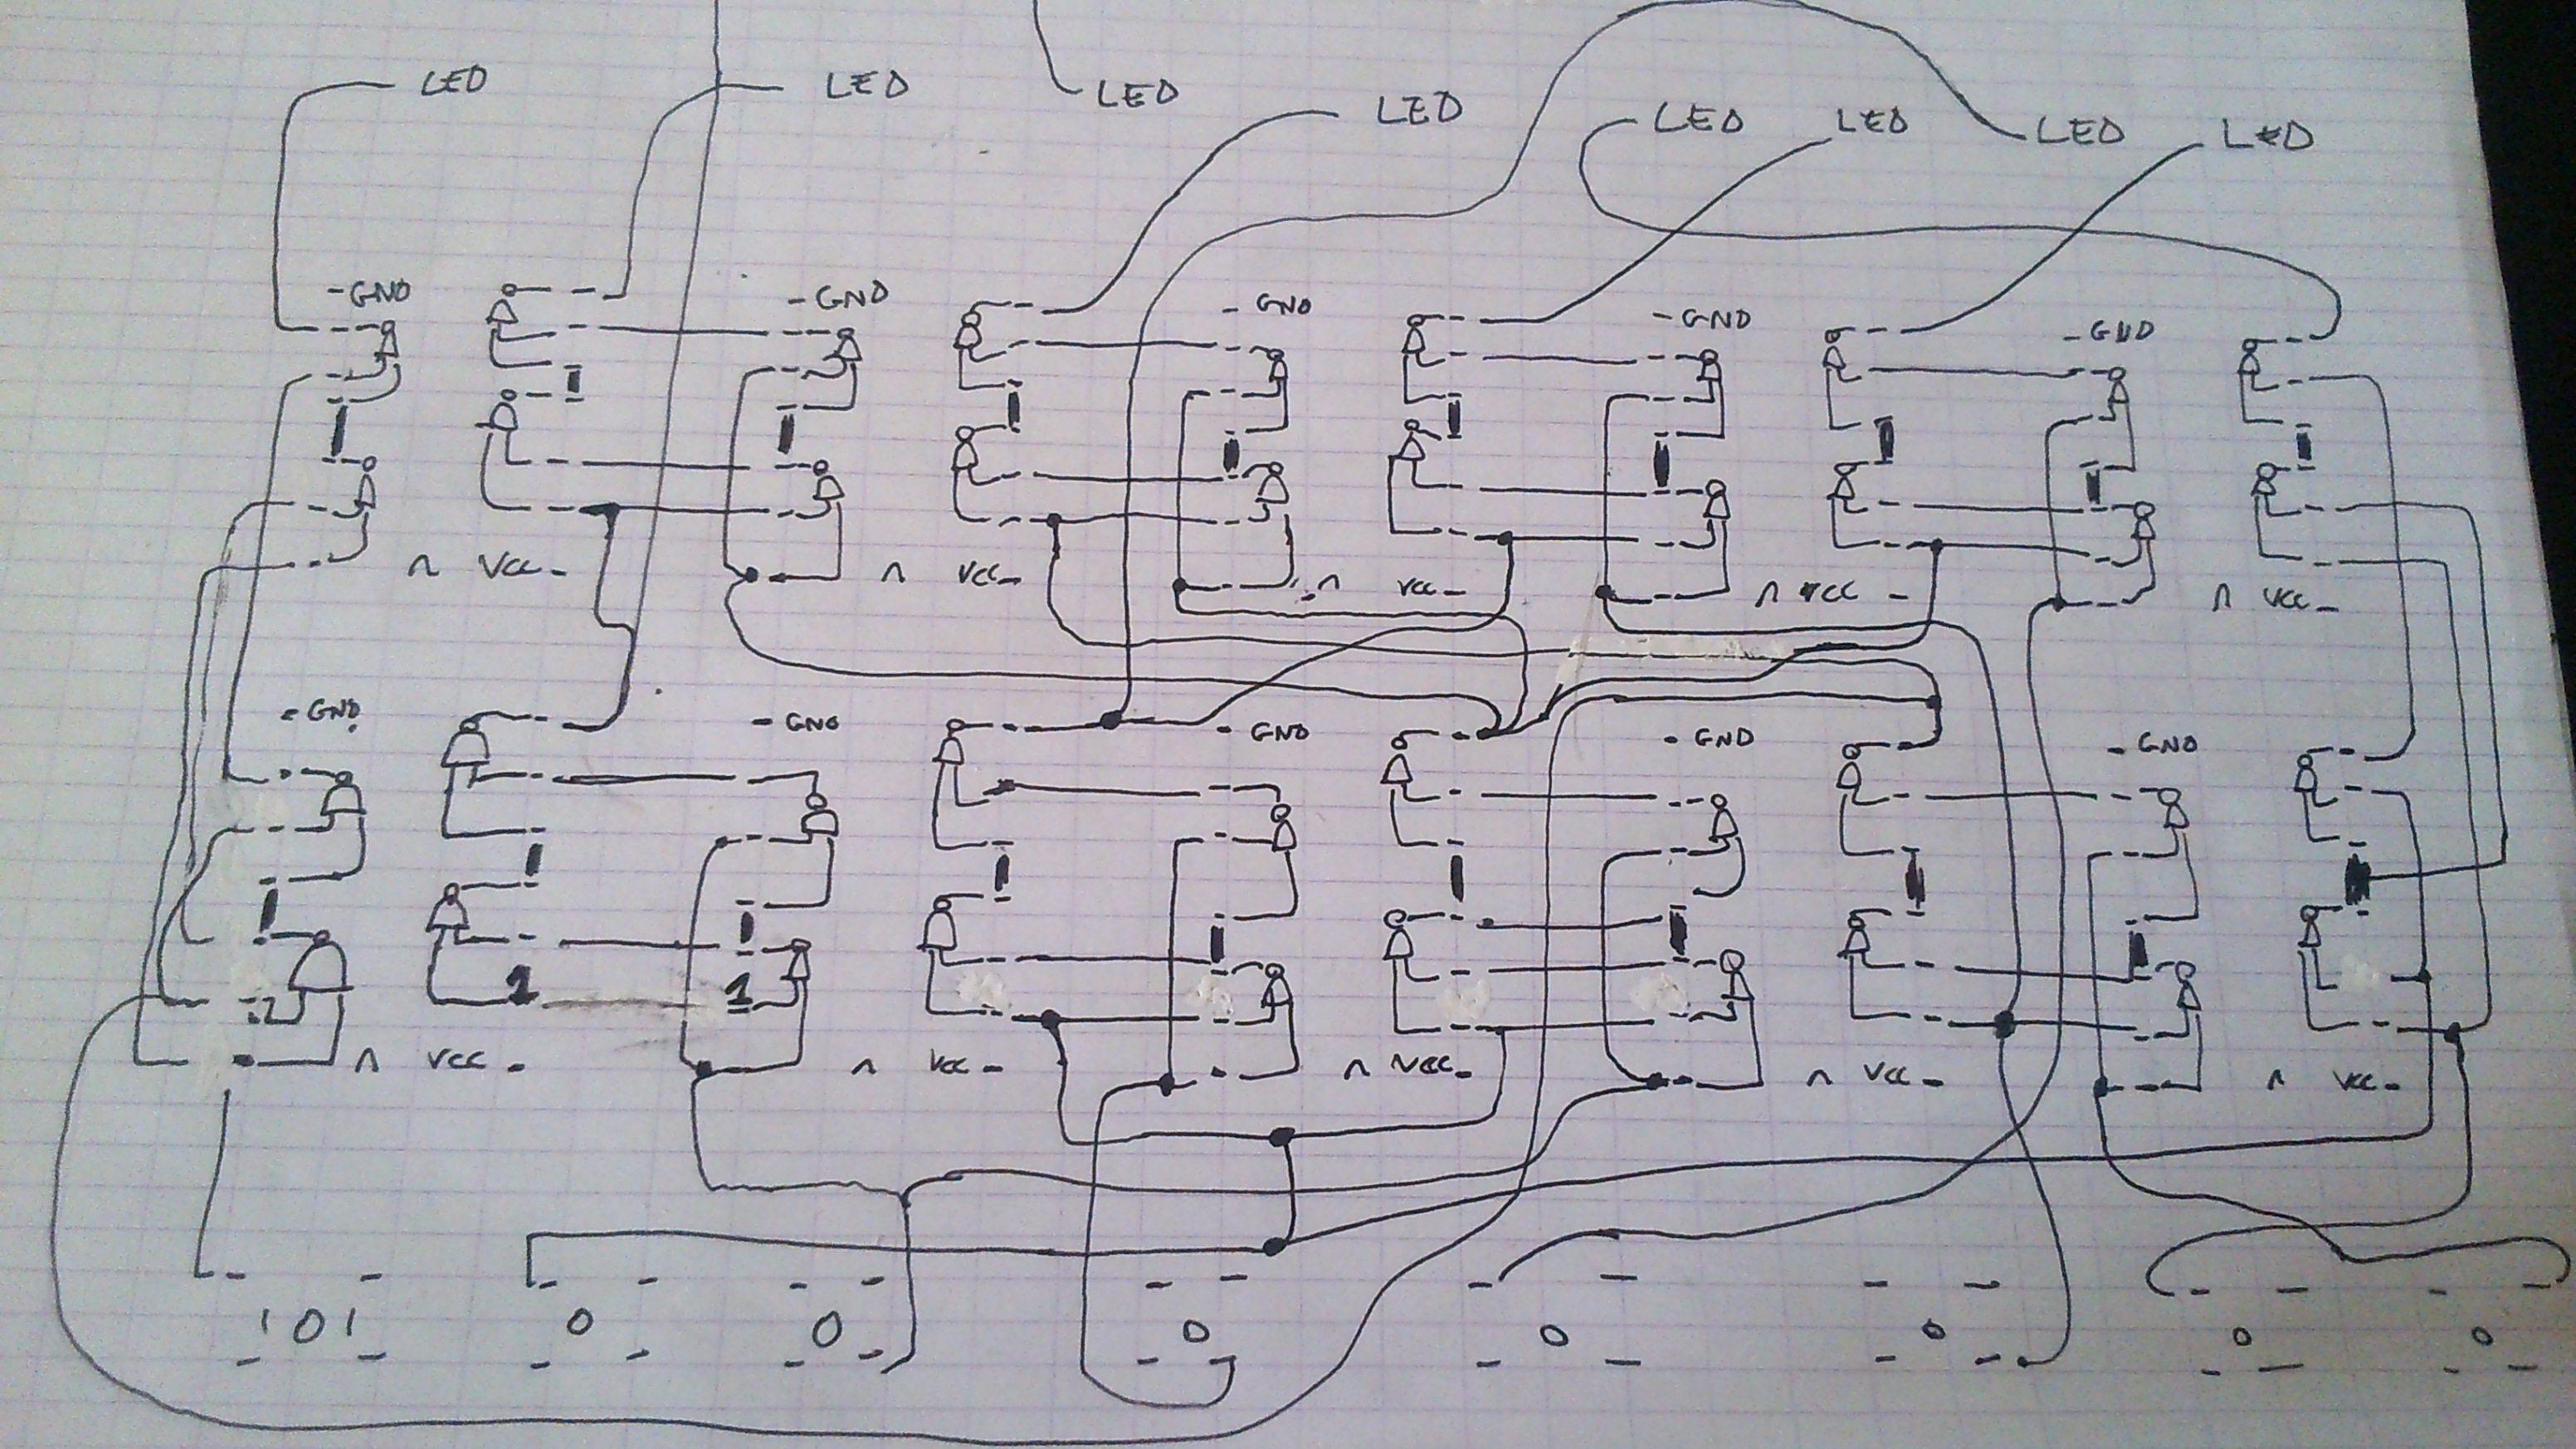 LED LED LED LED LED LED LED LED
-GND -GND -GND -GND -GND
VCC- VCC- VCC- VCC - VCC-
-GND -GND -GND -GND -GND
1 1
VCC - VCC - VCC- VCC - VCC-
101 0 0 0 0 0 0 0